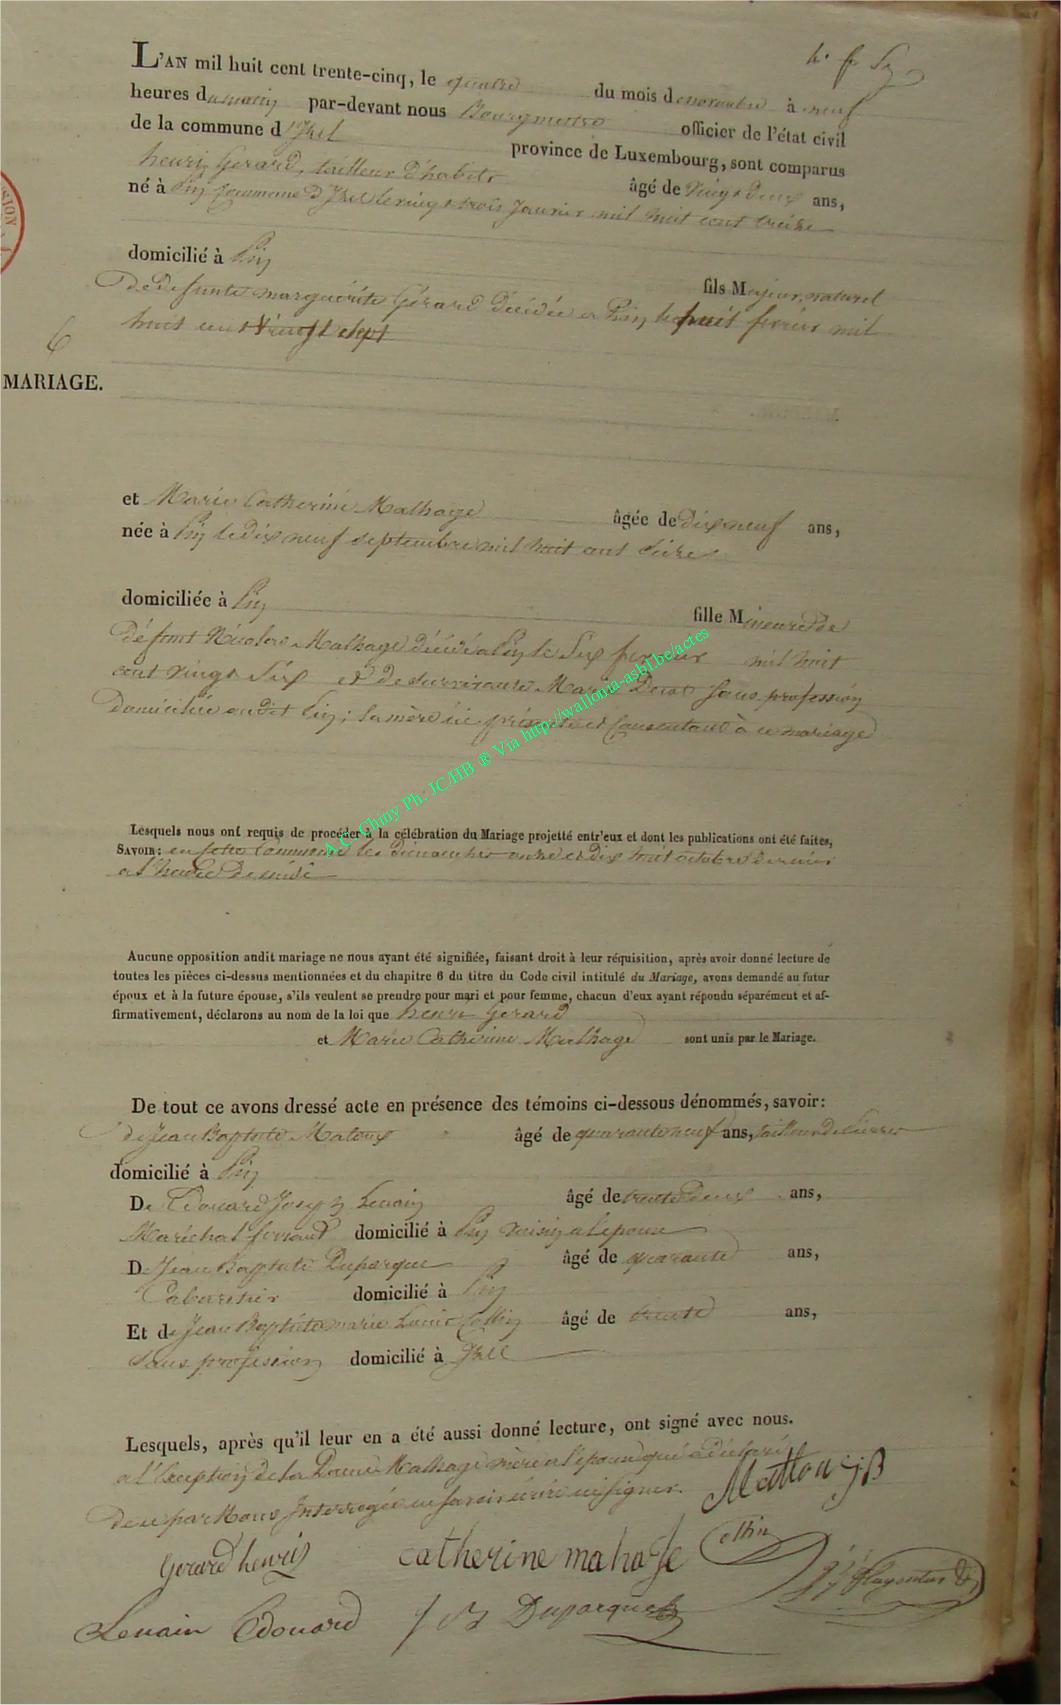 L'AN mil huit cent trente-cinq, le quatre du mois de novembre à neuf
heures du matin par-devant nous Bourgmestre officier de l'état civil
de la commune d'Izel province de Luxembourg, sont comparus
henri Gerard, tailleur d'habits âgé de vingt deux ans,
né à Pin Commune d'Izel le vingt trois Janvier mil huit cent treize
domicilié à Pin fils Majeur, naturel
De défunte marguerite Gérard Décédée a Pin le huit fevrier mil
huit cent vingt sept
6
MARIAGE.
et Marie Catherine Malhage âgée de dix neuf ans,
née à Pin le dix neuf septembre mil huit cent seize
domiciliée à Pin fille Mineure de
défunt Nicolas Malhage décédé a Pin le Six fevrier mil huit
cent vingt Six et de survivante Marie Sans profession
Domiciliée au dit Pin; la mère ici présente et Consentant à ce mariage
Lesquels nous ont requis de procéder à la célébration du Mariage projetté entr'eux et dont les publications ont été faites,
SAVOIR: en cette Commune les Dimanches onze et Dix huit octobre dernier
a l'heure De midi
Aucune opposition audit mariage ne nous ayant été signifiée, faisant droit à leur réquisition, après avoir donné lecture de
toutes les pièces ci-dessus mentionnées et du chapitre 6 du titre du Code civil intitulé du Mariage, avons demandé au futur
époux et à la future épouse, s'ils veulent se prendre pour mari et pour femme, chacun d'eux ayant répondu séparément et af-
firmativement, déclarons au nom de la loi que henri Gerard
et Marie Catherine Malhage sont unis par le Mariage.
De tout ce avons dressé acte en présence des témoins ci-dessous dénommés, savoir:
de Jean Baptiste Matoux âgé de quarante neuf ans, tailleur de Pierres
domicilié à Pin
De Edouard Joseph Lenain âgé de trente deux ans,
Maréchal ferrant domicilié à Pin voisin a l'epoux
De Jean Baptiste Duparque âgé de quarante ans,
Cabaretier domicilié à Pin
Et de Jean Baptiste marie Louis Collin âgé de trente ans,
Sans profession domicilié à Izel
Lesquels, après qu'il leur en a été aussi donné lecture, ont signé avec nous.
a l'Exception de la Dame Malhage mère a l'épouse qui a déclaré
De ce par Nous Interrogée ne savoir écrire ni signer.
Mattoux jB
Gerard henri Catherine mahage Collin
Lenain Edouard J B Duparque
A.C. Chiny Ph. JC.HB ® Via http://wallonia-asbl.be/actes